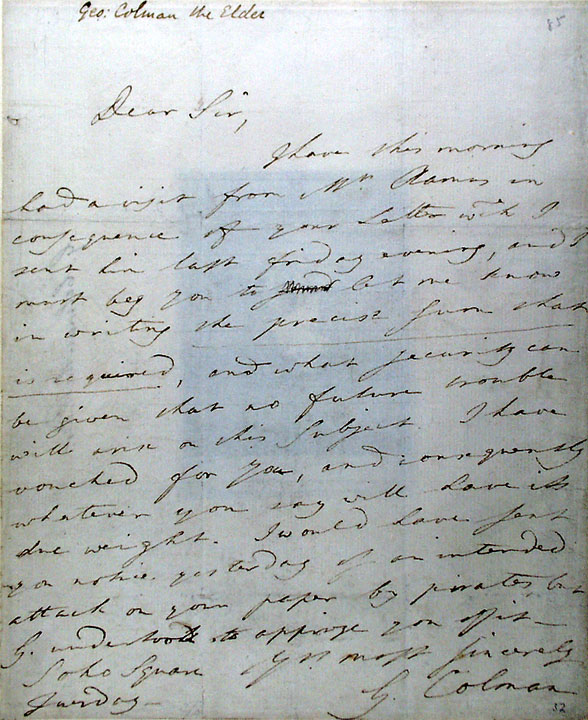 Geo: Colman the Elder
85
Dear Sir,
I have this morning
had a visit from Mrs. Ramus in
consequence of your Letter wch. I
sent him last friday evening, and I
must beg you to let me know
in writing the precise sum that
is required, and what security can
be given that no future trouble
will arise on this subject. I have
vouched for you, and consequently
whatever you say will have its
due weight. I would have sent
you notice yesterday of an intended
attack on your paper by pirates, but
G. undertook to apprize you of it—
Soho Square Yrs most sincerely
Tuesday— G. Colman
32